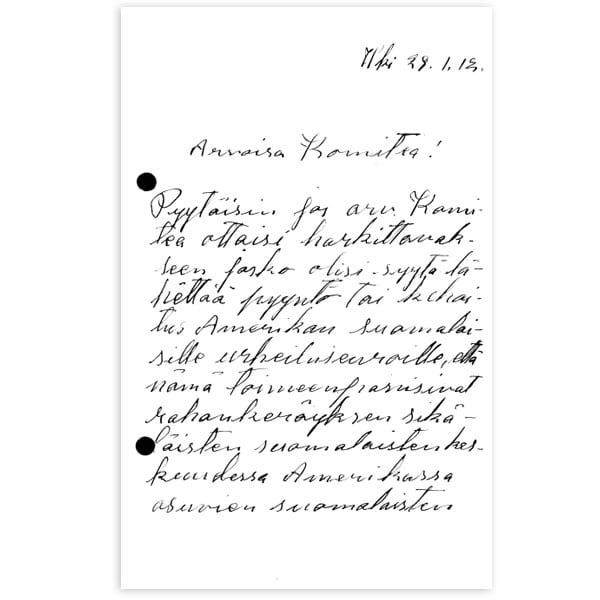 Hki 29.1.12.
Arvoisa Komitea!
Pyytäisin jos arv. Komi-
tea ottaisi harkittavak-
seen josko olisi syytä lä-
hettää pyyntö tai kehoi-
tus Amerikan suomalai-
sille urheiluseuroille, että
nämä toimeenpanisivat
rahankeräyksen sikä-
läisten suomalaisten kes-
kuudessa Amerikassa
asuvien suomalaisten